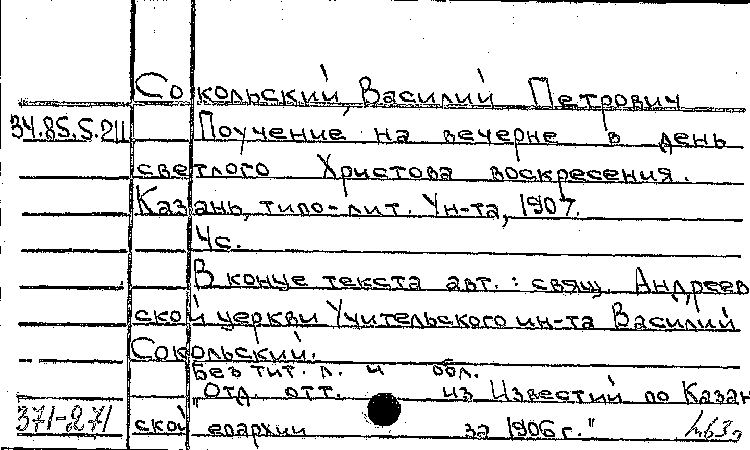 Сокольский, Василий Петрович
34.85.5.211 Поучение на вечерне в день
светлого Христова воскресения.
Казань, типо-лит. Ун-та, 1907.
4с.
В конце текста авт.: свящ. Андреев
ской церкви Учительского ин-та Василий
Сокольский.
Без тит. л. и обл.
"Отд. отт. из Известий по Казан
371-271 ской епархии за 1906 г."